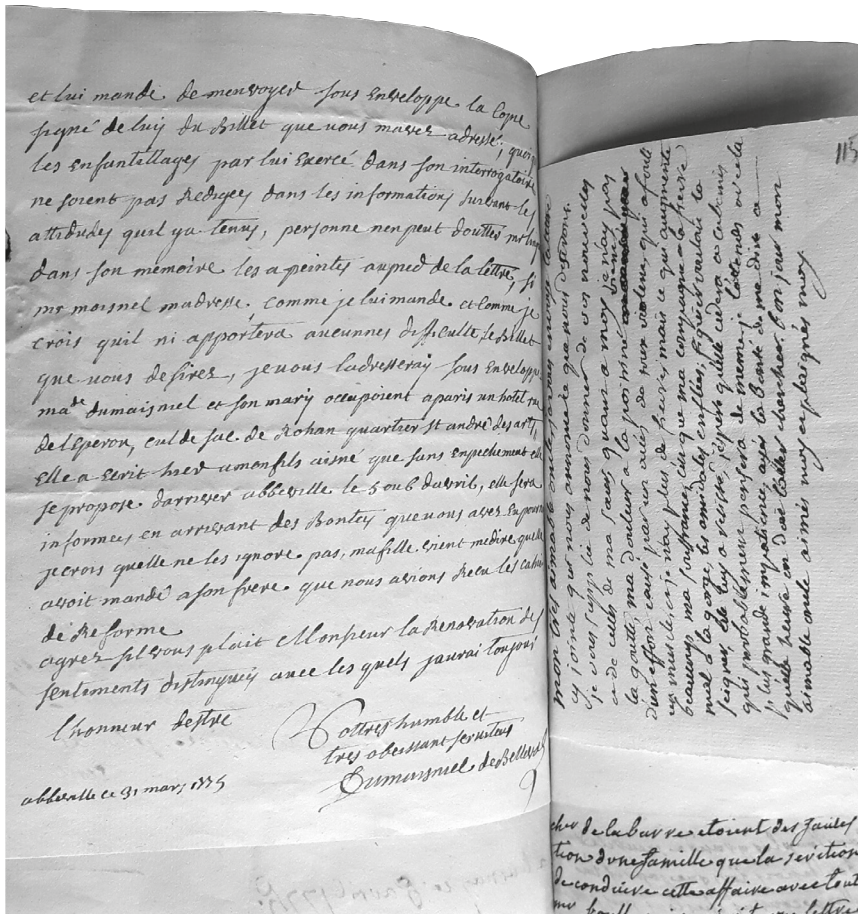 et lui mande de menvoyer sous Enveloppe la Copie
signé de luy du Billet que vous mavez adressé, quoiq
les Enfantillages par lui Exercé dans son interrogatoire
ne soient pas Rediges dans les informations suivant les
attitudes quil y a tenus, personne nen peut douttés mr
dans son mémoire les a peintes au pied de la lettre, si
mr moisnel madresse, comme je lui mande et comme je
crois quil ni apportera aucunnes difficulté, le Billet
que vous desirez, je vous ladresseray sous Enveloppe
made dumaisniel et son mary occupoient a paris un hotel rue
de leperon, cul de sac de Rohan quartier st andré des arts,
Elle a Ecrit hier a mon fils aisné que sans Enpechement elle
se propose darriver abbeville le 5 ou 6 davril, elle sera
informeés en arrivant des Bontés que vous avez Eu pour
je crois quelle ne les ignore pas, ma fille vient me dire quelle
avoit mandé a son frere que nous avions Recu les
de Reforme
agrez sil vous plait Monsieur la Renovation des
sentiments distingués avec les quels jaurai toujours
lhonneur destre
Vottres humble et
tres obeissant serviteur
Dumaisniel de Belleval
abbeville ce 31 mars 1775
115
mon tres aimable oncle
cy jointe qui nous annonce que nous
je vous supplie de nous donner de vos nouvelles
et de celles de ma soeur, quant a moy je nay pas
la goutte, ma douleur a la poitrine
dun effort causé par un accès de toux violent, qui a foulé
un muscle, et je nay plus de fievre, mais ce qui augmente
beaucoup ma souffrance, cest que ma compagne a la fievre
mal à la gorge, les amidales enflées,
saigner, elle luy a resisté, jespere quelle cedera
qui probablement pensera de meme, je lattends avec la
plus grande impatience, ayés la bonté de me dire a
quelle heure on doit laller chercher. bon jour mon
aimable oncle aimés moy et plaignés moy
cher de la barre etoient des fautes
tion dune famille que la
de conduire cette affaire avec tout